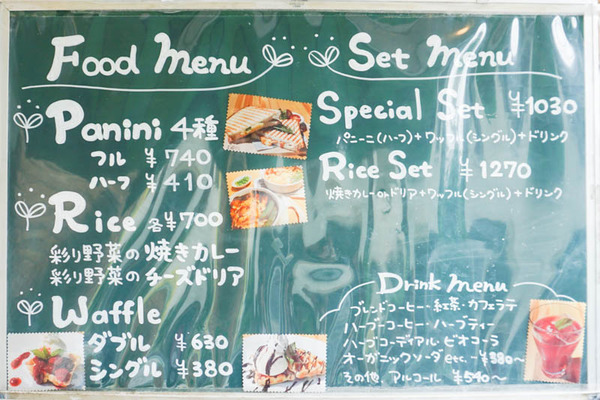 Food Menu
Panini 4種
フル ¥740
ハーフ ¥410
Rice 各¥700
彩り野菜の焼きカレー
彩り野菜のチーズドリア
Waffle
ダブル ¥630
シングル ¥380
Set Menu
Special Set ¥1030
パニーニ(ハーフ)+ワッフル(シングル)+ドリンク
Rice Set ¥1270
焼きカレーorドリア+ワッフル(シングル)+ドリンク
Drink Menu
ブレンドコーヒー・紅茶・カフェラテ
ハーブコーヒー・ハーブティー
ハーブコーディアル・ビオコーラ
オーガニックソーダetc. ¥380〜
その他、アルコール ¥540〜